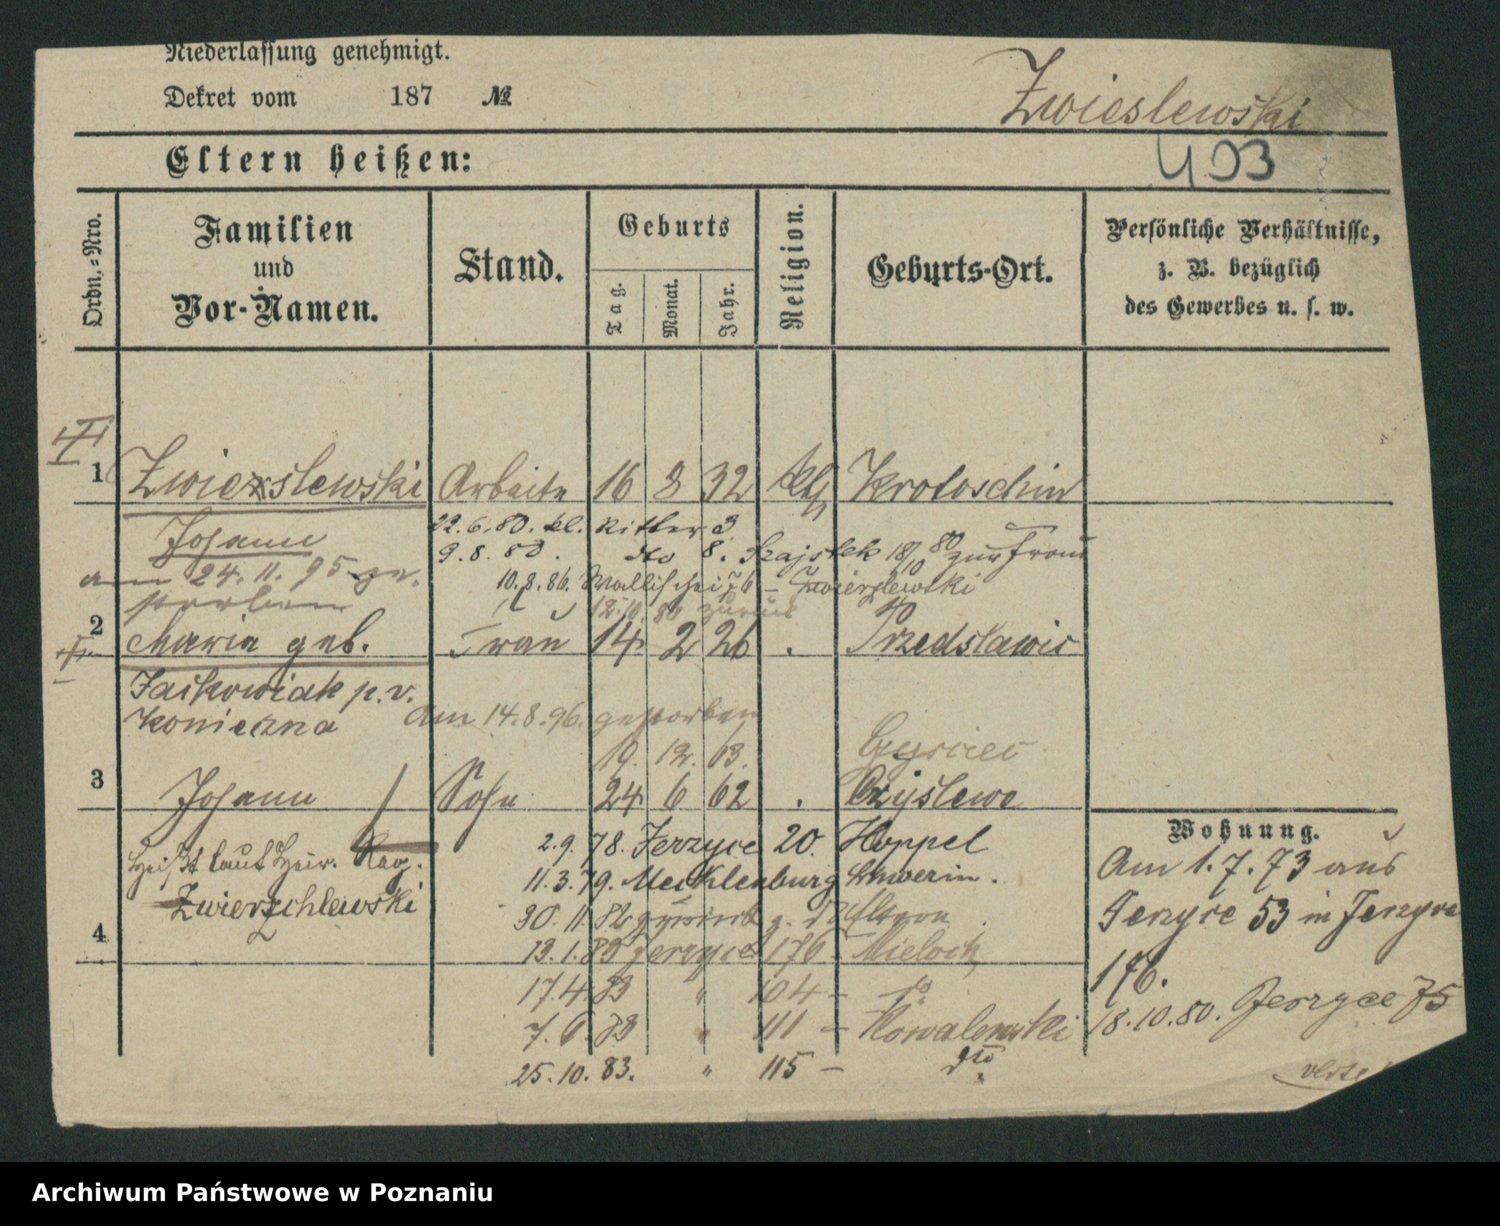 Niederlassung genehmigt.
Dekret vom 187 №
Zwieslewski
403
Eltern heißen:
Ordn.-Nro.
Familien
und
Vor-Namen.
Stand.
Geburts
Tag.
Monat.
Jahr.
Religion.
Geburts-Ort.
Persönliche Verhältnisse,
z. B. bezüglich
des Gewerbes u. s. w.
1 Zwiezslewski Arbeiter 16 8 32 kth Krotoschin
Johann
22.6.80. kl. Ritter 3.
9.8.80. dto 8. Szajstek 18/10 80 zur Frau
am 24.11.95 ge-
storben
10.8.86. Wallischei 76 – Zwierzlewski
12.10.80 zurück
2 Maria geb. Frau 14 2 26 . Przedslawic
Jaskowiak p. v.
Konieczna
am 14.8.96. gestorben
19. 12. 13.
3 Johann Sohn 24 6 62 .
Heißt laut Heir. Reg.
Zwierzchlewski
2.9.78. Jerzyce 20. Hoppel
11.3.79. Mecklenburg Schwerin.
30.11.82 z. d. Eltern
4
13.1.83 Jerzyce 176 – Mieloch
17.4.83 " 104 – do
7.6.83 " 111 – Kowalewski
25.10.83. " 115 – dto
Wohnung.
Am 1.7.73 aus
Jerzyce 53 in Jerzyce
176.
18.10.80. Jerzyce 75
Archiwum Państwowe w Poznaniu